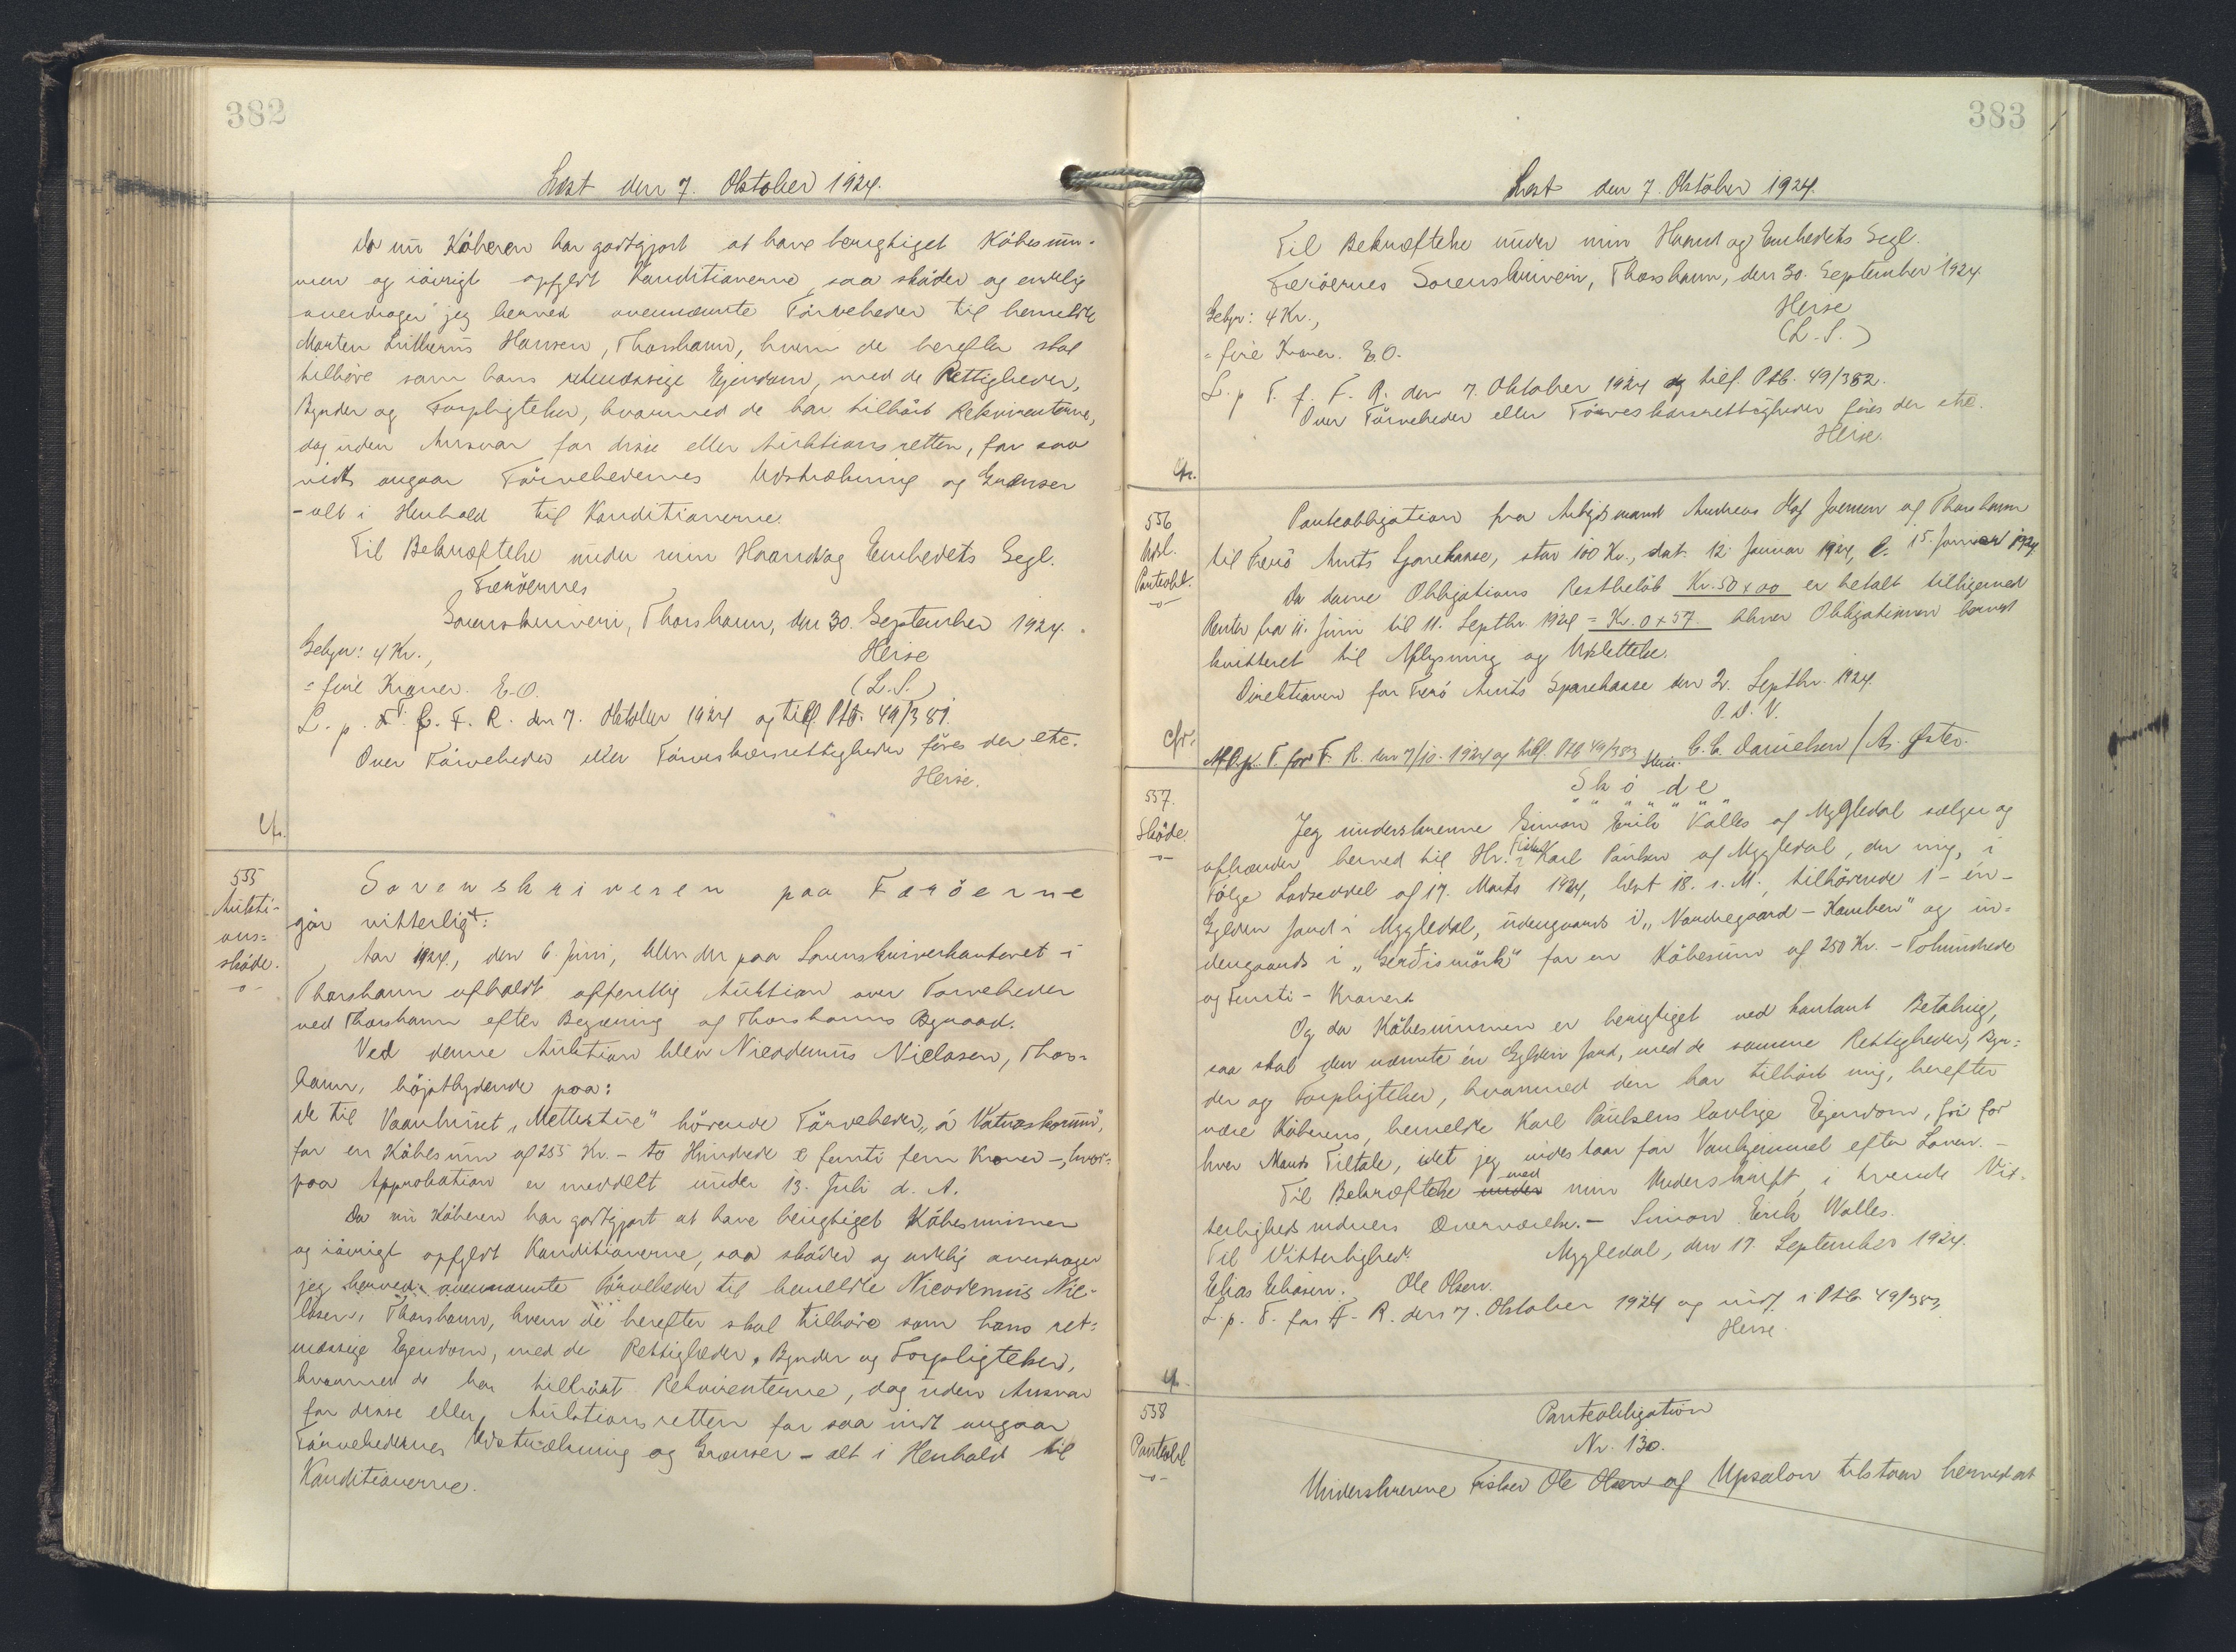 382
Læst den 7. Oktober 1924.
Da nu Køberen har godtgjort at have berigtiget Købesum-
men og iøvrigt opfyldt Konditionerne, saa skøder og endelig
overdrager jeg herved ovennævnte Tørveheder til bemeldte
Morten Lutherus Hansen, Thorshavn, hvem de herefter skal
tilhøre som hans retmæssige Ejendom, med de Rettigheder,
Byrder og Forpligtelser, hvormed de har tilhørt Rekvirenterne,
dog uden Ansvar for disse eller Auktionsretten, for saa
vidt angaar Tørvehedernes Udstrækning og Grænser
- alt i Henhold til Konditionerne.
Til Bekræftelse under min Haand og Embedets Segl.
Færøernes
Sorenskriveri, Thorshavn, den 30. September 1924.
Gebyr: 4 Kr.,
Heise
= fire Kroner. E.O.
(L.S.)
L. p. T. f. F. R. den 7. Oktober 1924 og tilf. Ptb. 49/381.
Over Tørveheder eller Tørveskærsrettigheder føres der etc.
Heise.
Cfr.
555
Aukti-
ons=
skøde.
-o-
Sorenskriveren paa Færøerne
gør vitterligt:
Aar 1924, den 6. Juni, blev der paa Sorenskriverkontoret i
Thorshavn afholdt offentlig Auktion over Tørveheder
ved Thorshavn efter Begæring af Thorshavns Byraad.
Ved denne Auktion blev Nicodemus Nielasen, Thors=
havn, højstbydende paa:
de til Vaanhuset "Mettustue" hørende Tørveheder "á Vatnaskorum",
for en Købesum af 255 Kr. - to Hundrede & femti fem Kroner -, hvor=
paa Approbation er meddelt under 13. Juli d. A.
Da nu Køberen har godtgjort at have berigtiget Købesummen
og iøvrigt opfyldt Konditionerne, saa skøder og endelig overdrager
jeg herved ovennævnte Tørveheder til bemeldte Nicodemus Nie-
lasen, Thorshavn, hvem de herefter skal tilhøre som hans ret=
mæssige Ejendom, med de Rettigheder, Byrder og Forpligtelser,
hvormed de har tilhørt Rekvirenterne, dog uden Ansvar
for disse eller Auktionsretten for saa vidt angaar
Tørvehedernes Udstrækning og Grænser - alt i Henhold til
Konditionerne.
383
Læst den 7. Oktober 1924.
Til Bekræftelse under min Haand og Embedets Segl.
Færøernes Sorenskriveri, Thorshavn, den 30. September 1924.
Gebyr: 4 Kr.,
Heise
= fire Kroner. E.O.
(L.S.)
L. p. T. f. F. R. den 7. Oktober 1924 og tilf. Ptb. 49/382.
Over Tørveheder eller Tørveskærsrettigheder føres der etc.
Heise.
Cfr.
556
Udsl.
Panteobl.
-o-
Panteobligation fra Arbejdsmand Andreas Olaf Joensen af Thorshavn
til Færø Amts Sparekasse, stor 100 Kr., dat. 12. Januar 1924, l. 15. Januar 1924.
Da denne Obligations Restbeløb Kr. 50 x 00 er betalt tilligemed
Renter fra 11. Juni til 11. Septbr. 1924 = Kr. 0 x 57. bliver Obligationen herved
kvitteret til Aflysning og Udslettelse.
Direktionen for Færø Amts Sparekasse den 2. Septbr. 1924.
P. D. V.
C. C. Danielsen / As. Øster.
Cfr.
Afl. p. T. for F. R. den 7/10. 1924 og tilf. Ptb 49/383
557.
Skøde.
-o-
Skøde
Jeg underskrevne Simon Erik Valles af Mygledal sælger og
afhænder herved til Hr. Fisker Karl Paulsen af Mygledal, den mig, i
Følge Lodseddel af 17. Marts 1924, læst 18. s. M., tilhørende 1 - én -
Gylden Jord i Mygledal, udengaards i "Nordregaard - Hamben" og in=
dengaards i "Gerdismørk" for en Købesum af 250 Kr. - Tohundrede
og Femti - Kroner.
Og da Købesummen er berigtiget ved kontant Betaling,
saa skal den nævnte én Gylden Jord, med de samme Rettigheder, Byr=
der og Forpligtelser, hvormed den har tilhørt mig, herefter
være Køberens, bemeldte Karl Paulsens lovlige Ejendom, fri for
hver Mands Tiltale, idet jeg indestaar for Vanhjemmel efter Loven. -
Til Bekræftelse under med min Underskrift i tvende Vit-
terlighedsvidners Overværelse. - Simon Erik Walles.
Til Vitterlighed:
Mygledal, den 17. September 1924.
Elias Eliasen. Ole Olsen.
L. p. T. for F. R. den 7. Oktober 1924 og indf. i Ptb. 49/383
Heise.
Cfr.
558
Panteobl
-o-
Panteobligation
Nr. 130.
Underskrevne Fisker Ole Olsen af Upsalon tilstaar herved at